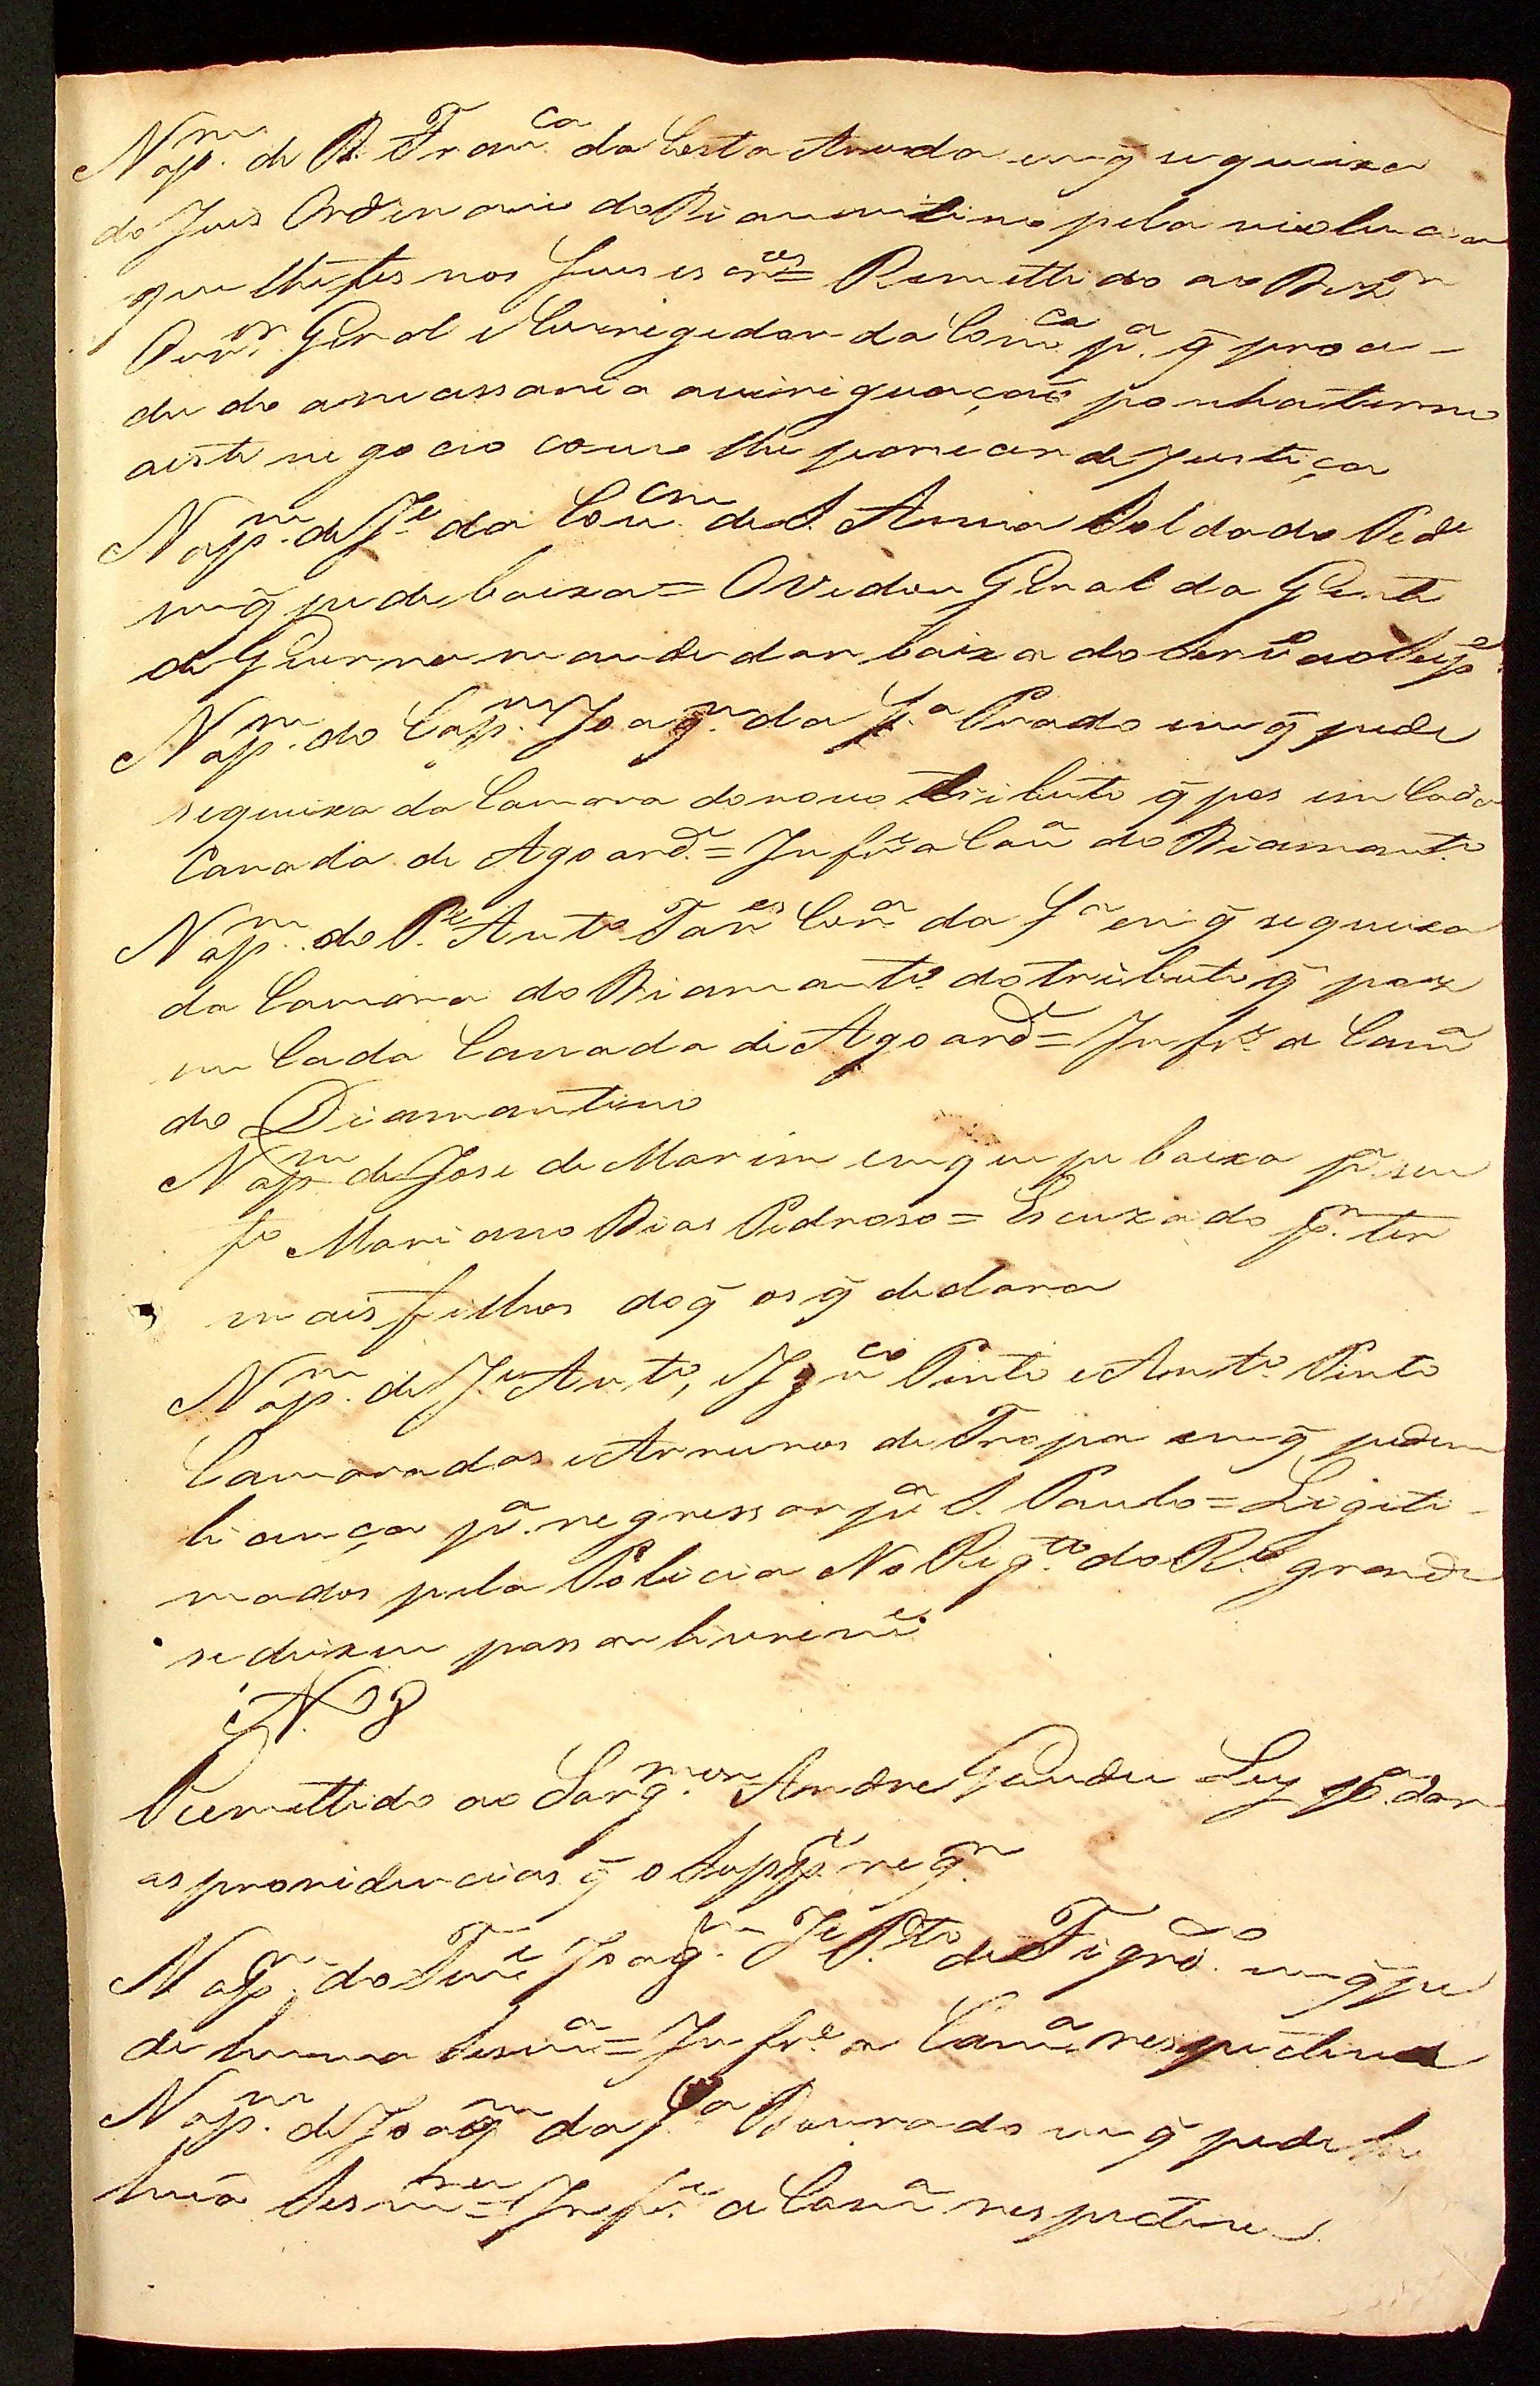 N ap.m de D. Fran.ca da Costa Arruda em q̃ se queixa
do Juis Ordinario do Diamantino pela violencia
que lhe fes nos seus escr.es = Remettido ao Dez.or
Ouv.or Geral e Corregedor da Com.ca p.a q̃ proce-
dendo a necessaria averiguação ponha termo
a este negocio como lhe parecer de justiça
N ap.m de J.e da Con.cam de S. Anna Soldado Pede
em q̃ pede baixa = O Vedor Geral da Gente
de Guerra mande dar baixa do Serv.o ao Supp.e
N ap.m do Cap.m Joaq.m da S.a Prado em q̃ pede
se queixa da Camara do novo tributo q̃ pos em Cada
Canada de Agoard.e = Infr.e a Cam.a do Diamant.o
N ap.m do P.e Ant.o Tav.es Corr.a da S.a em q̃ se queixa
da Camara do Diamant.o do tributo q̃ poz
em Cada Canada de Agoard.e = Infr.e a Cam.a
do Diamantino
N ap.m de Jose de Marim em que pe baixa p.a seu
f.o Mariano Dias Pedroso = Escuzado p.r ter
mais filhos do q̃ os q̃ declara
N ap.m de J.e Ant.o, Ign.co Pinto e Ant.o Pinto
Camaradas e Arrieiros de Tropa em q̃ pedem
licença p.a regressar p.a S. Paulo = Legiti-
mados pela Policia No Reg.to do R.o grande
se deixem passar livrem.e
N. 8
Remettido ao Sarg.mor Andre Gaudie Ley p.a dar
as providencias q̃ o Supp.e req.r
N ap.m do Ten.e Joaq.m J.e P.to de Figr.do em q̃ pe
de huma Sesm.a = Infr.e a Cam.a respectiva
N ap.m de Joaq.m da S.a Dourado em q̃ pede
huã Sesm.a = Infr.e a Cam.a respectiva